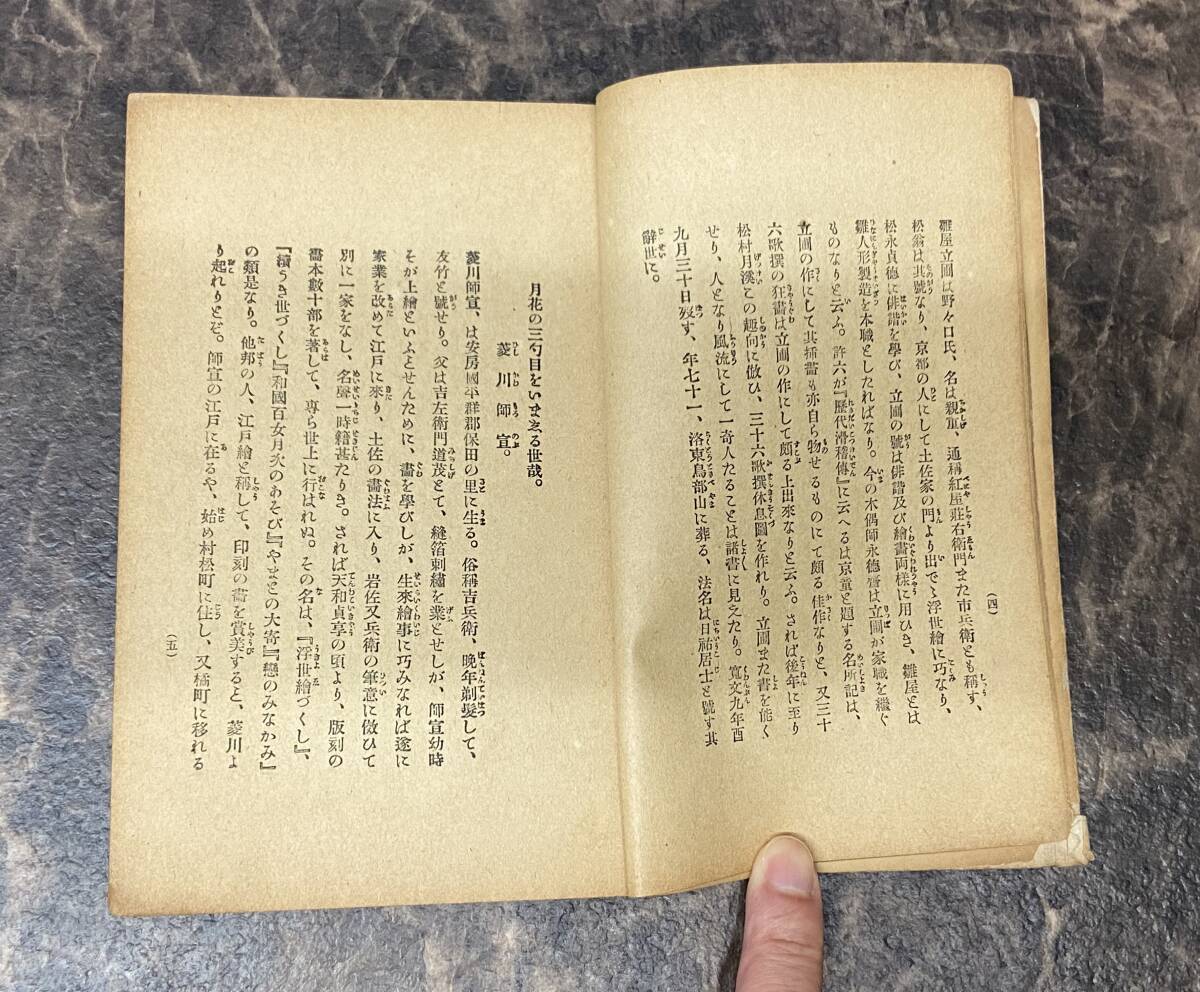 雛屋立圃は野々口氏、名は親重、通稱紅屋莊右衛門また市兵衛とも稱す、
松翁は其號なり、京都の人にして土佐家の門より出でゝ浮世繪に巧なり、
松永貞德に俳諧を學び、立圃の號は俳諧及び繪畫兩樣に用ひき、雛屋とは
雛人形製造を本職としたればなり。今の木偶師永德齋は立圃が家職を繼ぐ
ものなりと云ふ。許六が『歷代滑稽傳』に云へるは京童と題する名所記は、
立圃の作にして其插畫も亦自ら物せるものにて頗る佳作なりと、又三十
六歌撰の狂畫は立圃の作にして頗る上出來なりと云ふ。されば後年に至り
松村月溪この趣向に倣ひ、三十六歌撰休息圖を作れり。立圃また書を能く
せり、人となり風流にして一奇人たることは諸書に見えたり。寬文九年酉
九月三十日歿す、年七十一、洛東鳥部山に葬る、法名は日祐居士と號す其
辭世に。
(四)
月花の三勺目をいまゑる世哉。
菱川師宣。
菱川師宣、は安房國平群郡保田の里に生る。俗稱吉兵衛、晩年剃髮して、
友竹と號せり。父は吉左衛門道茂とて、縫箔刺繡を業とせしが、師宣幼時
そが上繪といふとせんために、畵を學びしが、生來繪事に巧みなれば遂に
家業を改めて江戸に來り、土佐の畵法に入り、岩佐又兵衛の筆意に倣ひて
別に一家をなし、名聲一時籍甚たりき。されば天和貞享の頃より、版刻の
畵本數十部を著して、專ら世上に行はれぬ。その名は、『浮世繪づくし』、
『續うき世づくし』『和國百女月次のあそび』『やまとの大寄』『戀のみなかみ』
の類是なり。他邦の人、江戸繪と稱して、印刻の畵を賞美すると、菱川よ
り起れりとぞ。師宣の江戸に在るや、始め村松町に住し、又橘町に移れる
(五)